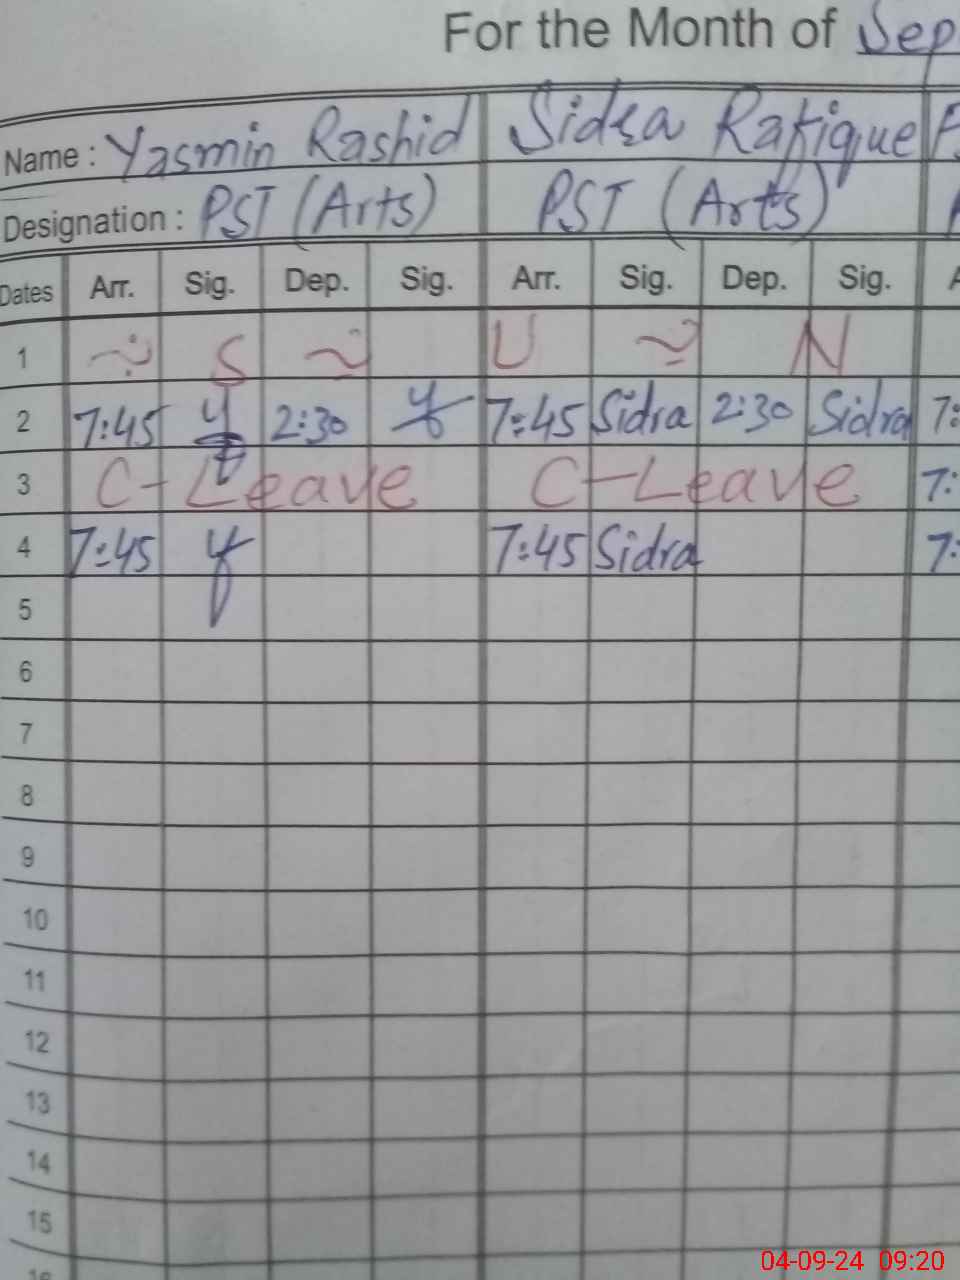 For the Month of Sep
Name : Yasmin Rashid Sidra Rafique
Designation : PST (Arts) PST (Arts)
Dates Arr. Sig. Dep. Sig. Arr. Sig. Dep. Sig.
1 S U N
2 7:45 2:30 7:45 Sidra 2:30 Sidra 7:
3 C-Leave C-Leave 7:
4 7:45 7:45 Sidra 7:
5
6
7
8
9
10
11
12
13
14
15
16
04-09-24 09:20